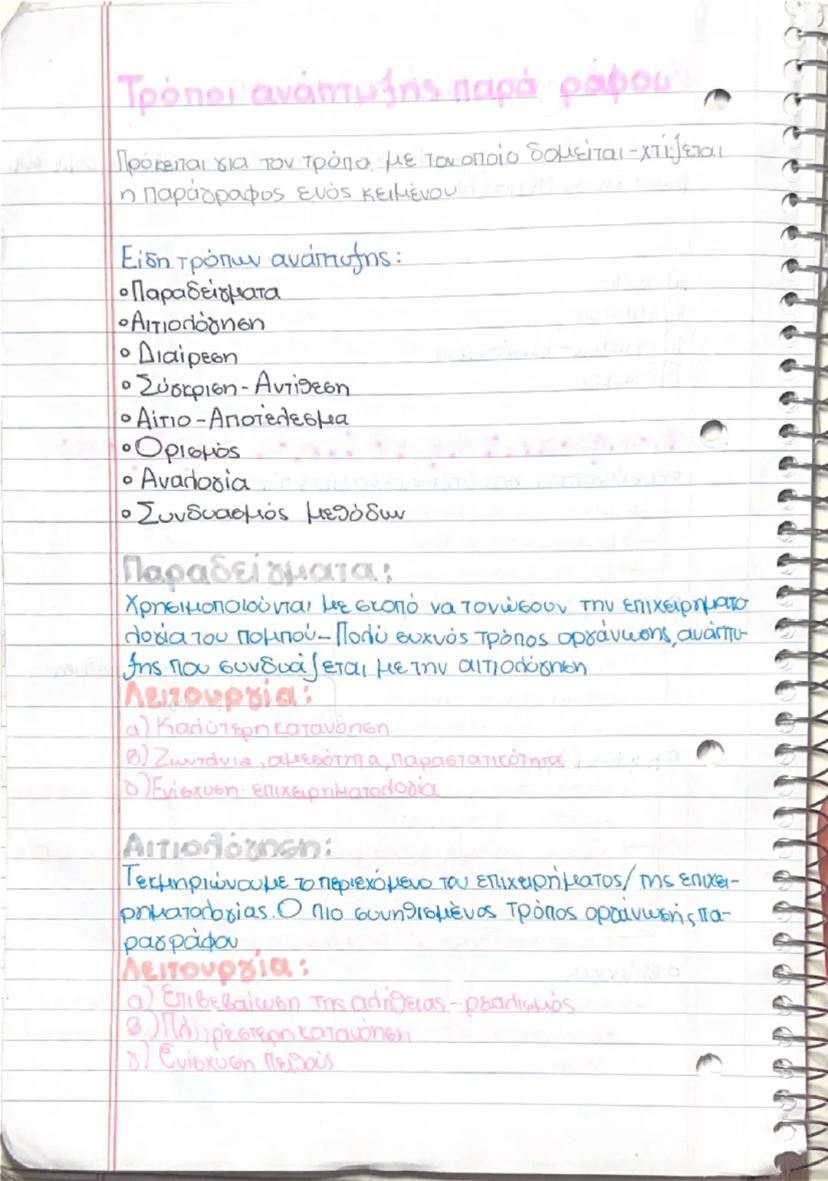 Τρόποι ανάπτυξης παρά ράφου
Πρόκειται για τον τρόπο με τον οποίο δομείται-χτίζεται
η παράγραφος ενός κειμένου
Είδη τρόπων ανάπτυξης:
• Παραδείγματα
• Αιτιολόγηση
• Διαίρεση
• Σύγκριση-Αντίθεση
• Αίτιο-Αποτέλεσμα
• Ορισμός
• Αναλογία
• Συνδυασμός μεθόδων
Παραδείγματα:
Χρησιμοποιούνται με σκοπό να τονώσουν την επιχειρηματο
λογία του πομπού-Πολύ συχνός τρόπος οργάνωσης, ανάπτυ-
ξης που συνδυάζεται με την αιτιολόγηση
Λειτουργία:
α) Καλύτερη κατανόηση
β) Ζωντάνια, αμεσότητα, παραστατικότητα
γ) Ενίσχυση επιχειρηματολογία
Αιτιολόγηση:
Τεκμηριώνουμε το περιεχόμενο του επιχειρήματος/της επιχει-
ρηματολογίας. Ο πιο συνηθισμένος τρόπος οργάνωσης πα-
ραγράφου
Λειτουργία:
α) Επιβεβαίωση της αλήθειας-ρεαλισμός
β) Πληρέστερη κατανόηση
γ) Ενίσχυση πειθούς